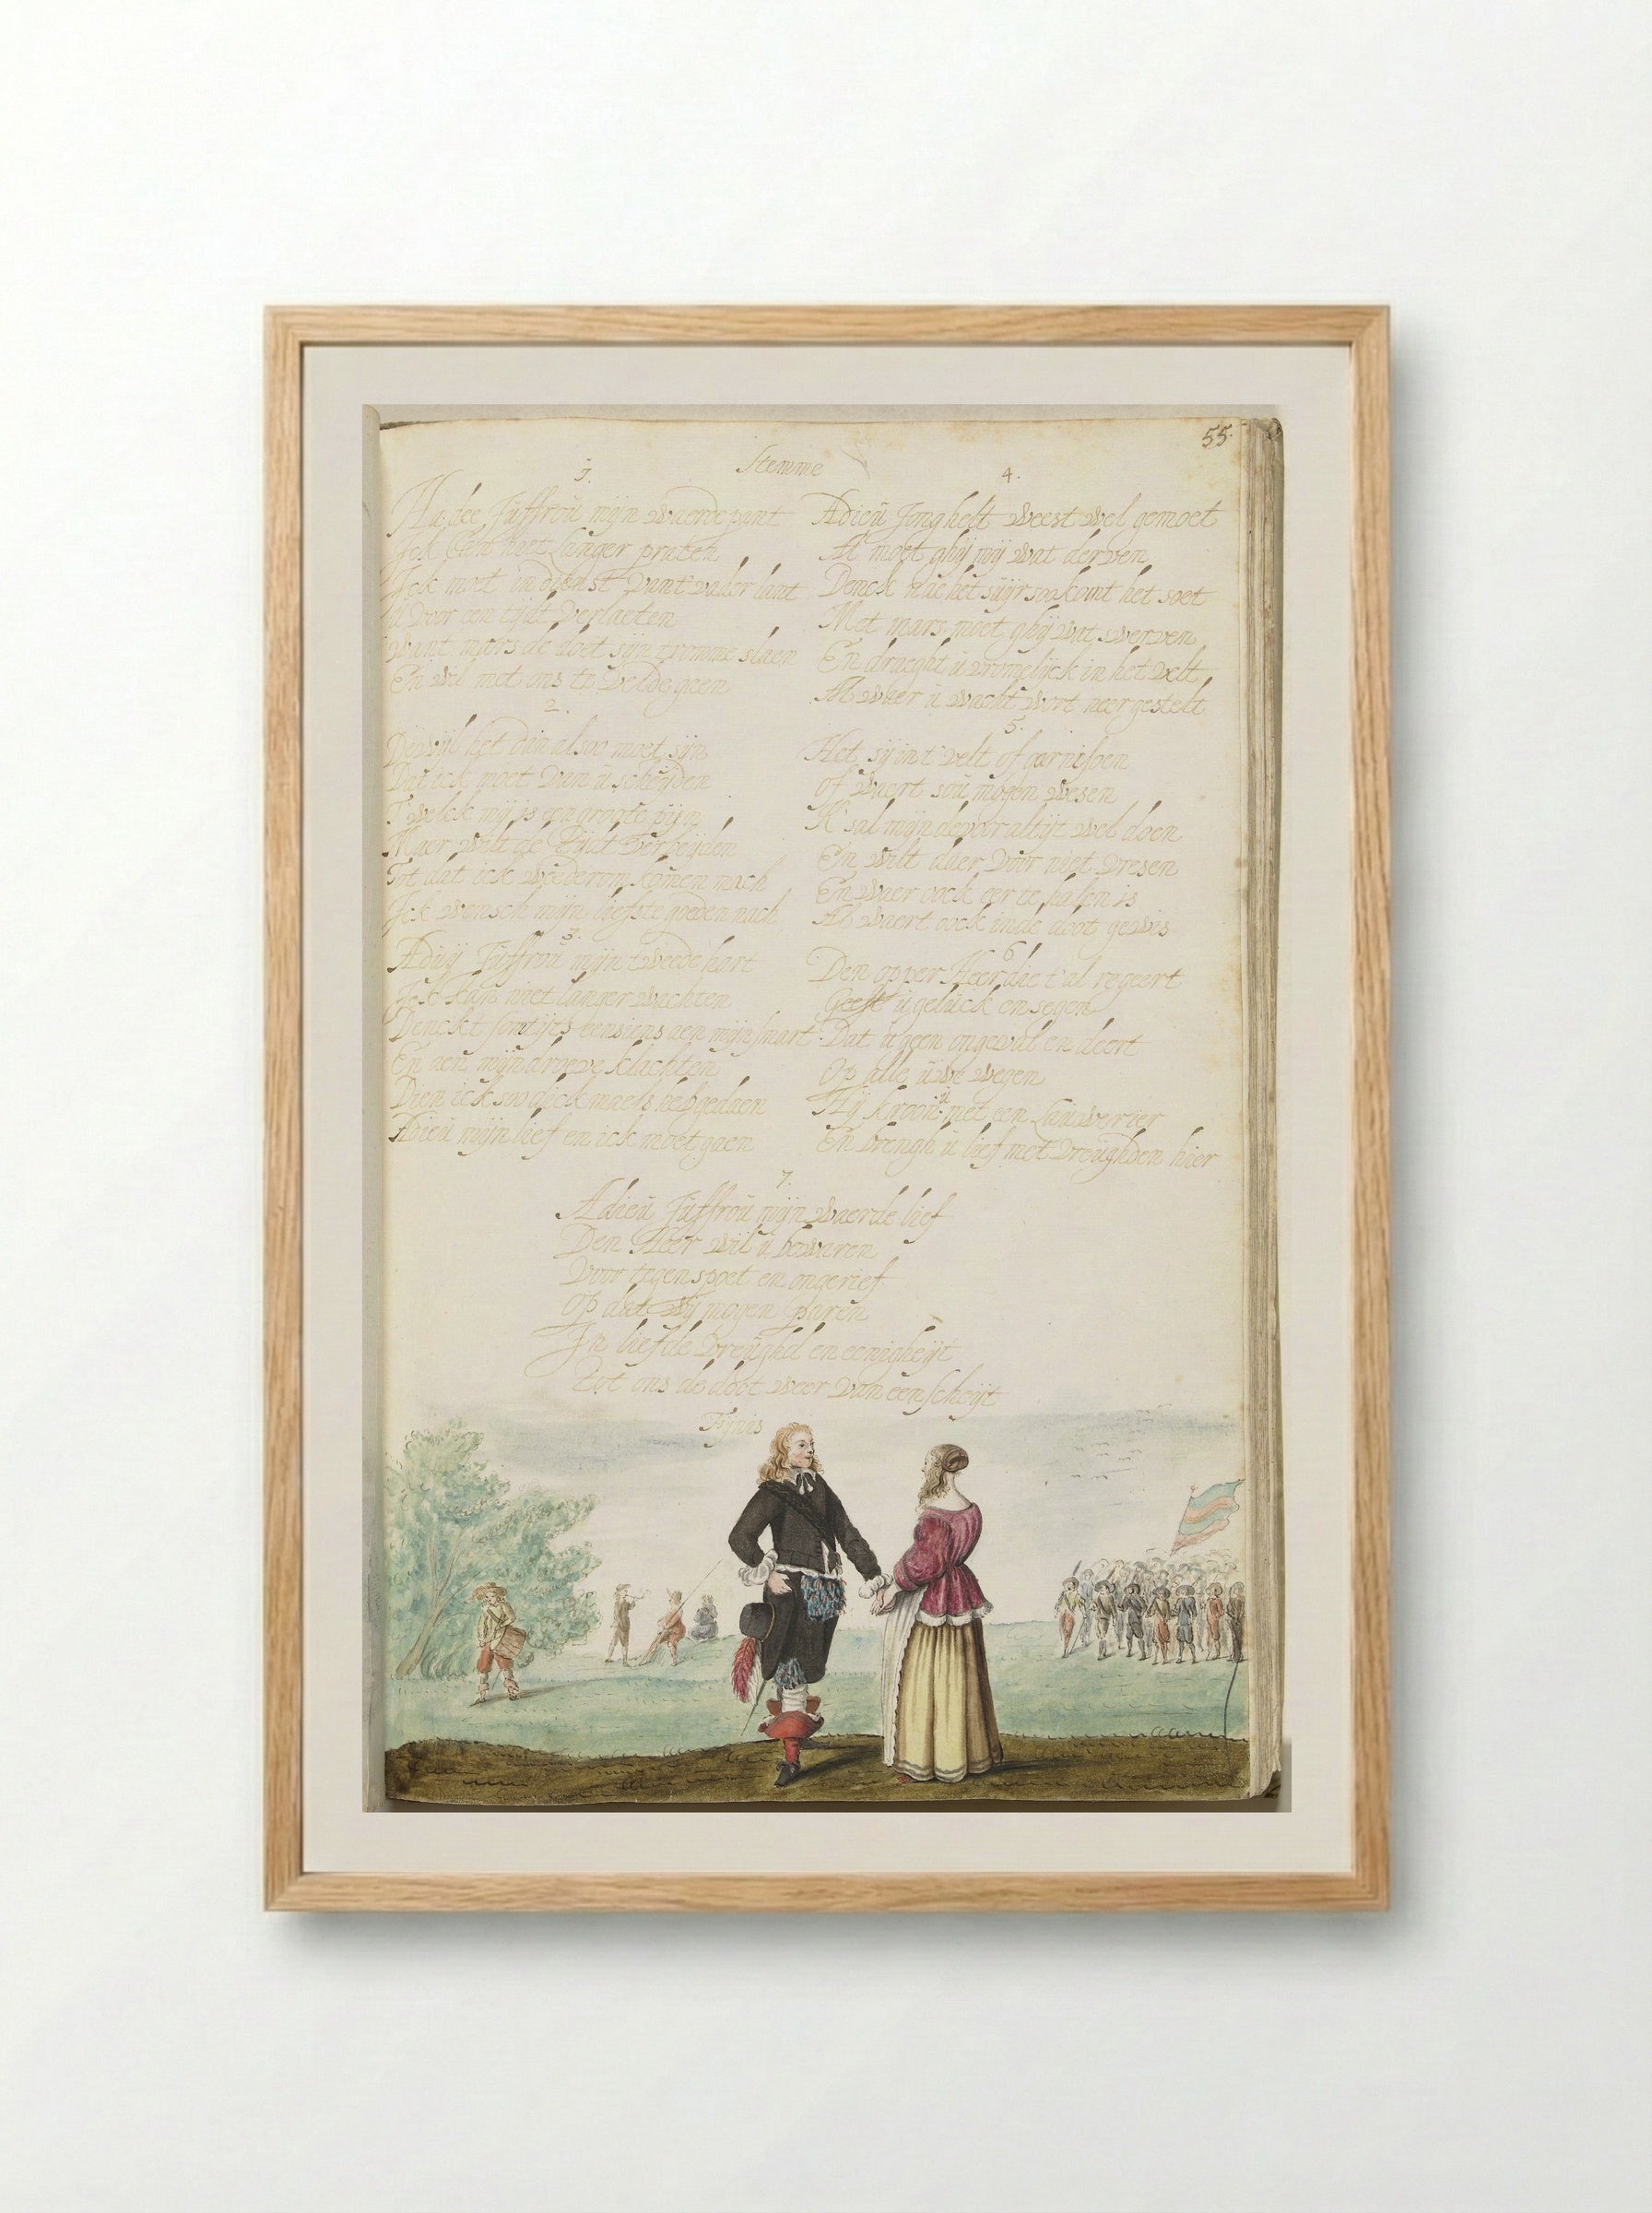 55.
Stemme
1.
Ha dee Juffrou mijn waerde pant
Ick Can niet Langer praten
Ick moet in dienst vant vaderlant
u voor een tijdt verlaeten
want mars de doet sijn tromme slaen
En wil met ons te velde gaen
2.
Dewijl het dan alsoo moet sijn
Dat ick moet van u scheijden
T welck mij is een groote pijn
Maer wilt de Tijdt verbeijden
Tot dat ick wederom komen mach
Ick wensch mijn liefste goeden nach
3.
Aduij Juffrou mijn tweede hart
Ick kan niet langer wachten
Denckt somtijts eensiens aen mijn smart
En aen mijn droeve klachten
Dien ick soo dijckmaels heb gedaen
Adieu mijn lief en ick moet gaen
4.
Adieu Jonghelt weest wel gemoet
Al moet ghij mij wat derven
Denck nae het suijr soo komt het soet
Met mars moet ghij wat swerven
En draeght u vromelijck in het velt
Al waer u wacht wort neer gestelt
5.
Het sij int velt of garnisoen
of waert sou mogen wesen
K sal mijn devoor altijt wel doen
En wilt daer voor niet vresen
En waer oock eer te halen is
Al waert oock inde doot gewis
6
Den opper Heer die t al regeert
Geeft u geluck en segen
Dat u geen ongeval en deert
Op alle uwe wegen
Hij kroon u met een Lauwerier
En brengh u lief met vreughden hier
7.
Adieu Juffrou mijn waerde lief
Den Heer wil u bewaren
Voor tegenspoet en ongerief
Op dat wij mogen paren
In liefde vreughd en eenigheijt
Tot ons de doot weer van een scheijt
Fijnis